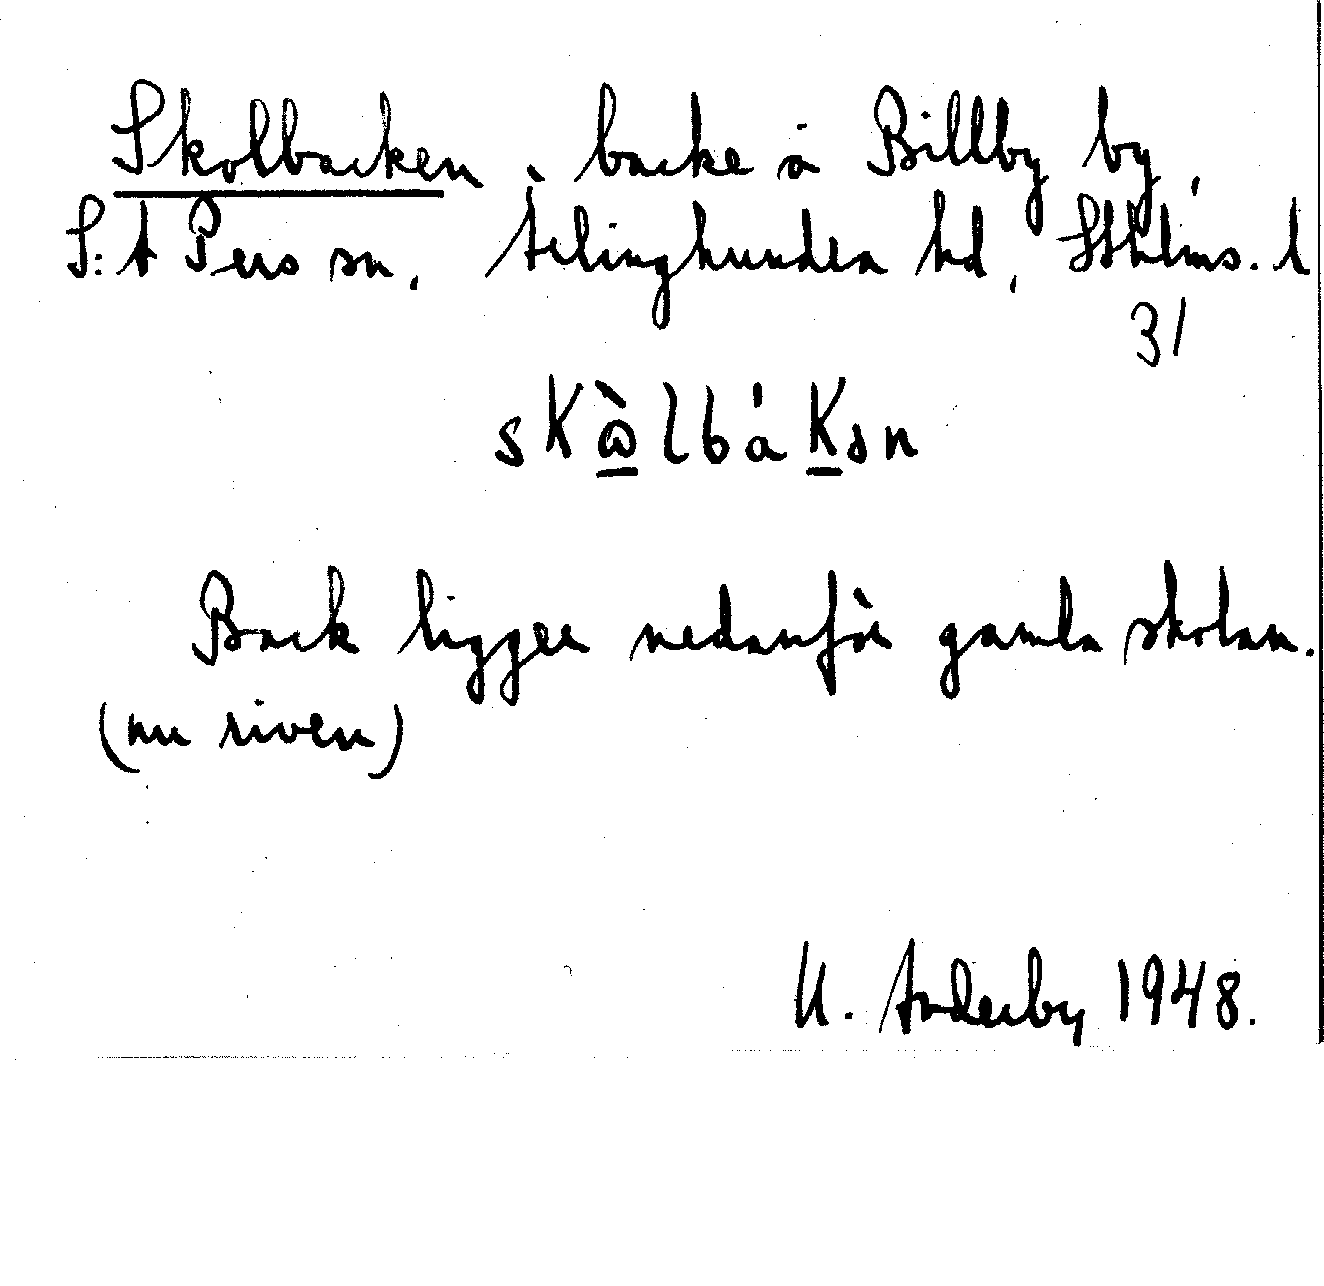 Skolbacken, backe å Billby by,
S:t Pers sn, Ärlinghundra hd, Sthlms. l
31
sKὼlbáKən
Back ligger nedanför gamla skolan.
(nu riven)
U. 1948.